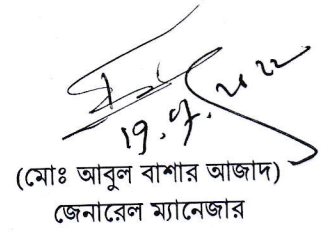 19.7.2022
(মোঃ আবুল বাশার আজাদ)
জেনারেল ম্যানেজার